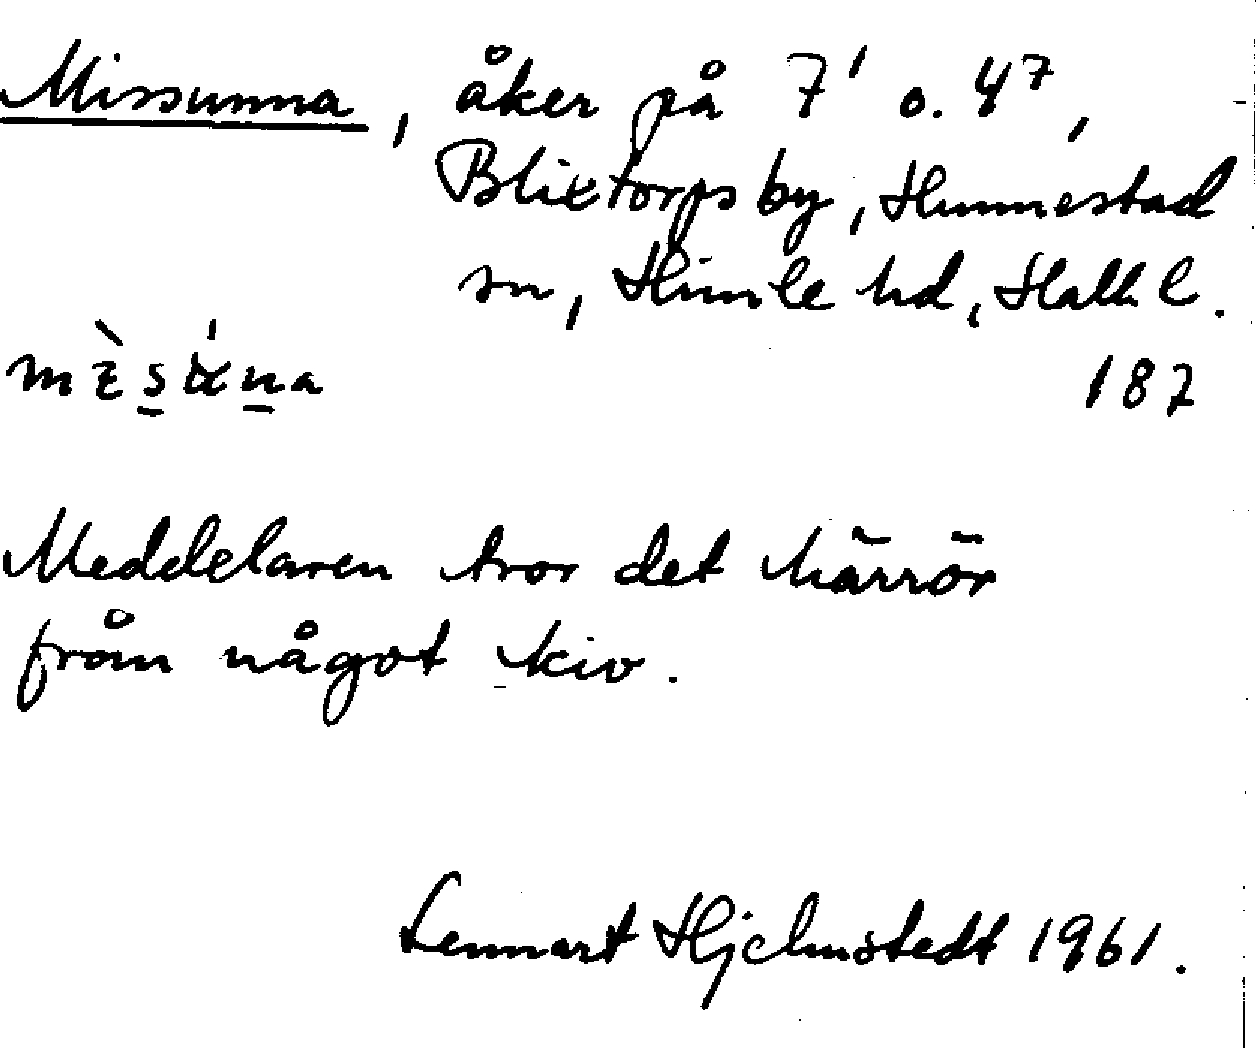 Missunna, åker på 7¹ o. 4⁷,
Blixtorps by, Hunnestad
sn, Himle hd, Hall. l.
187
Meddelaren tror det härrör
från något kiv.
Lennart Hjelmstedt 1961.